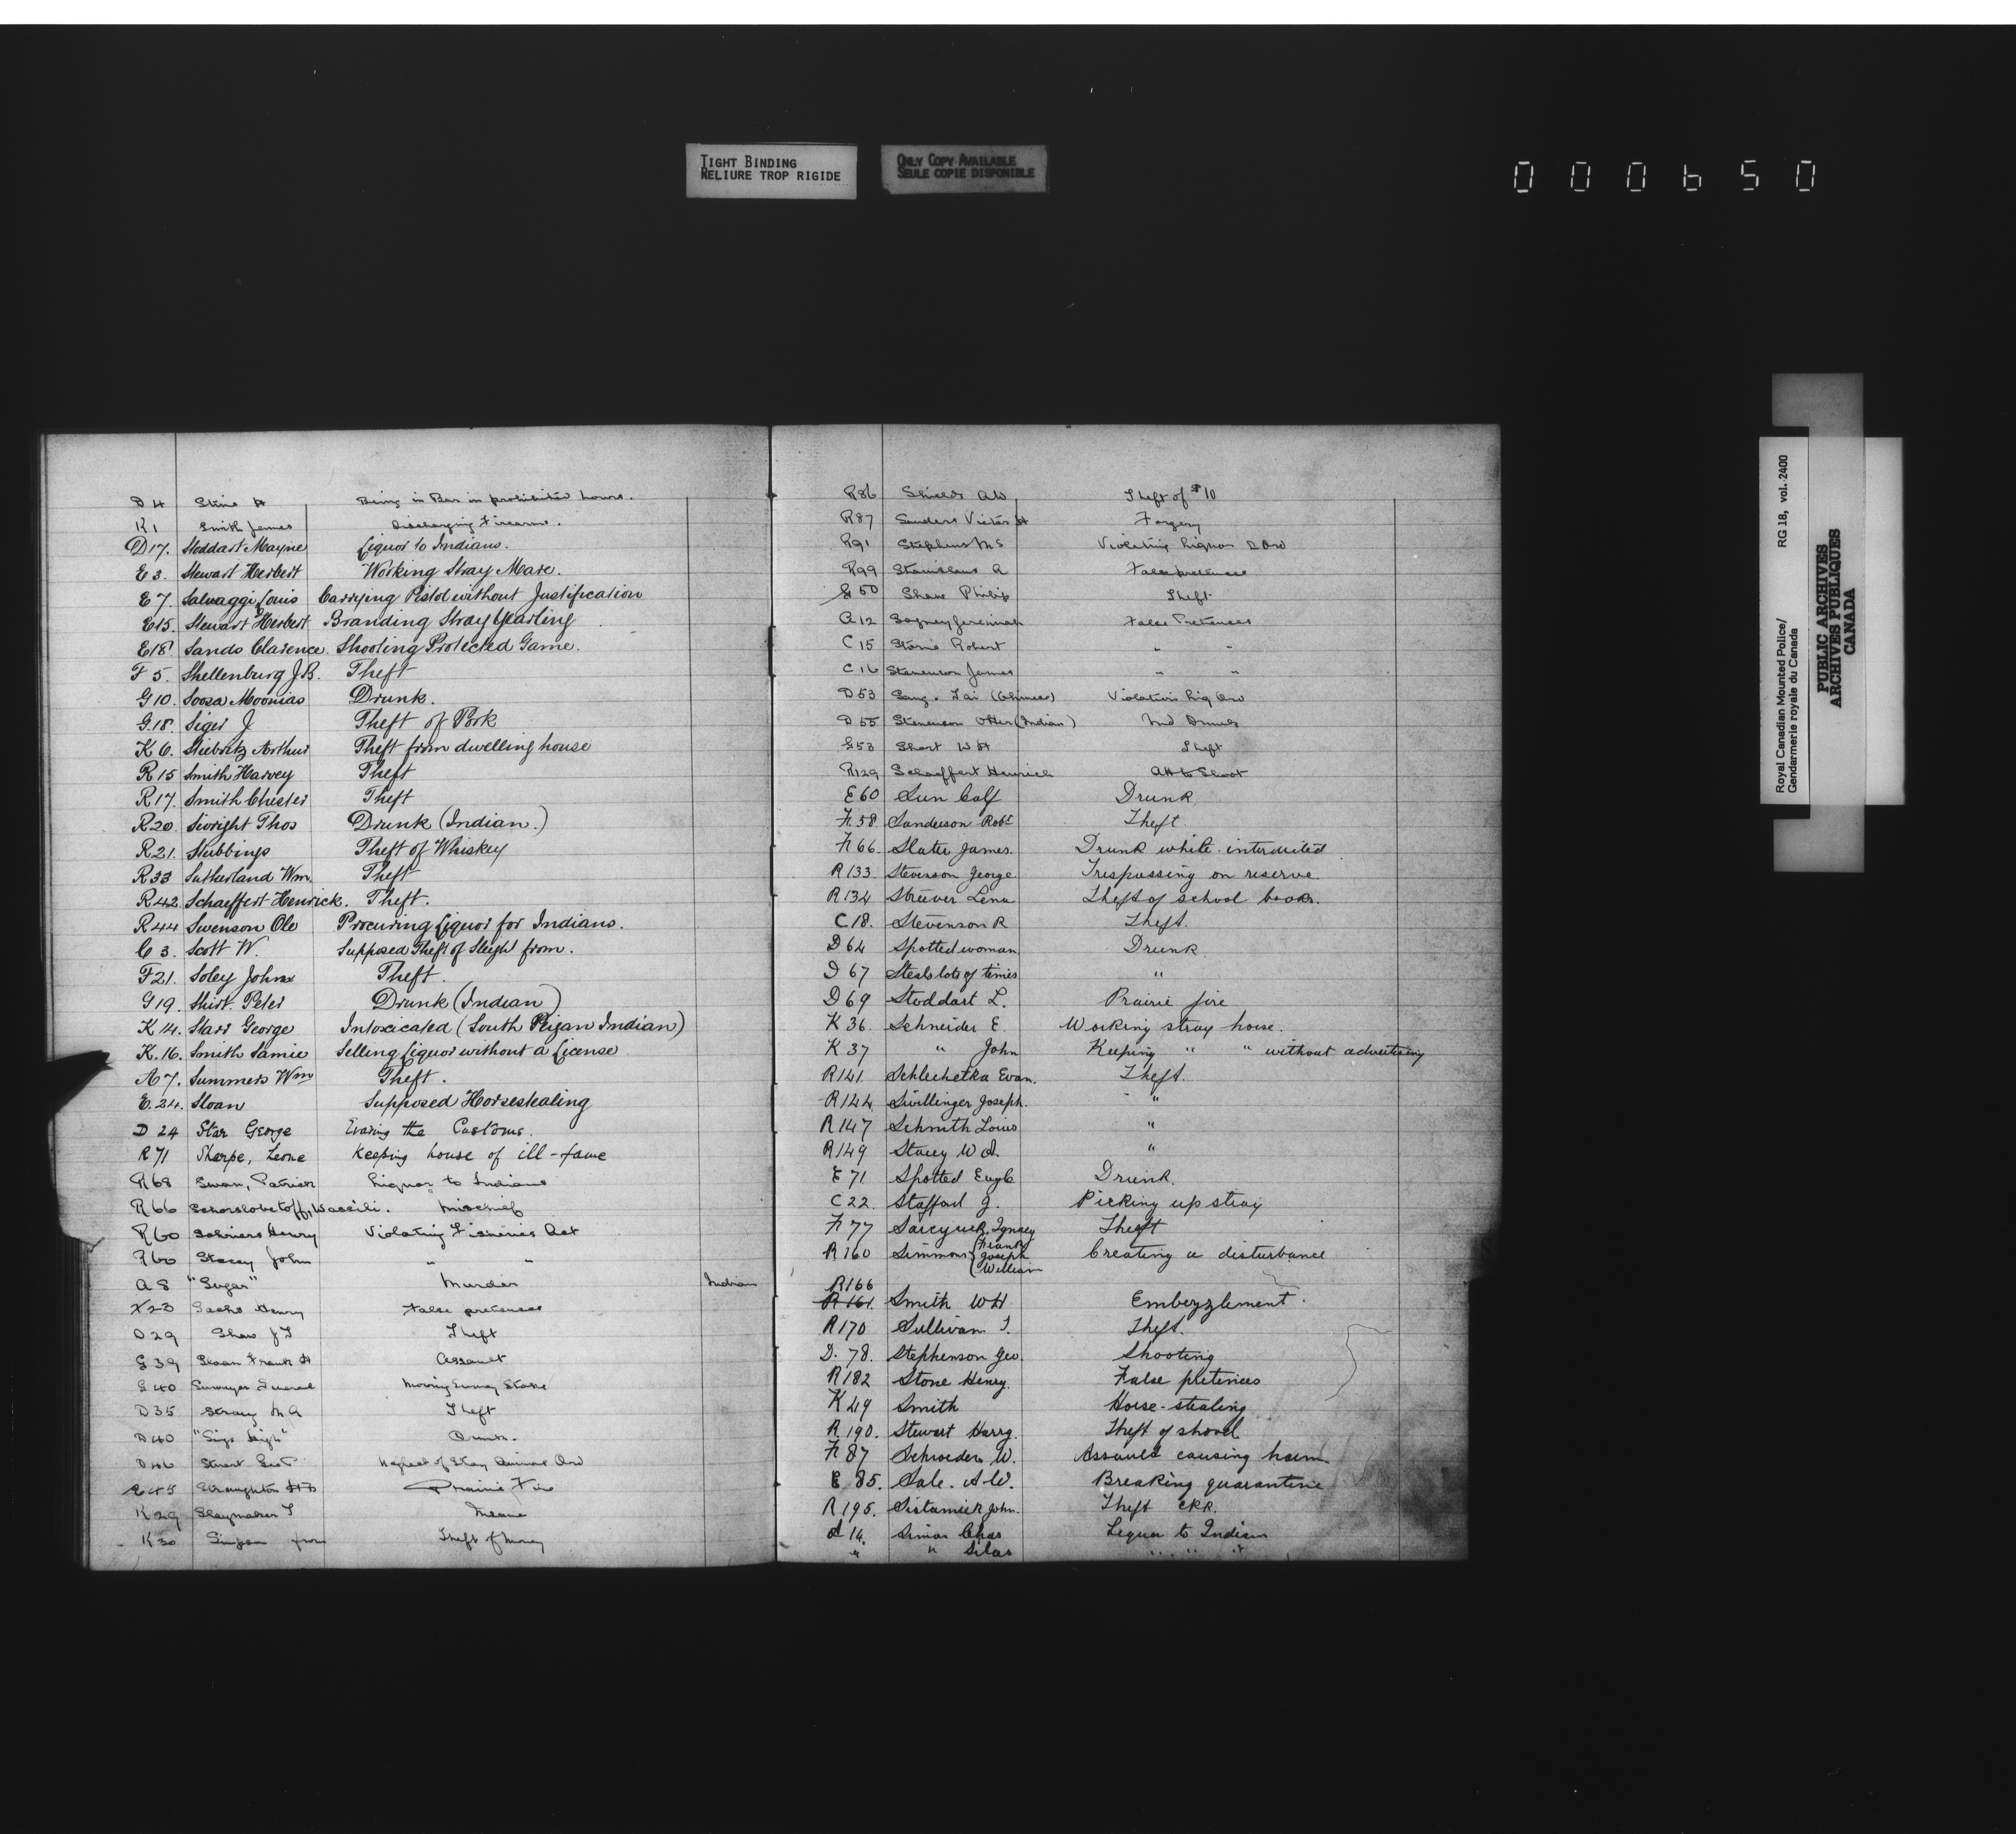 TIGHT BINDING
RELIURE TROP RIGIDE
ONLY COPY AVAILABLE
SEULE COPIE DISPONIBLE
000650
D 4 Stine H Being in Bar in prohibited hours.
K 1 Smith James Discharging Firearms.
D 17. Stoddart Mayne Liquor to Indians.
E 3. Stewart Herbert Working Stray Mare.
E 7. Salvaggi Louis Carrying Pistol without Justification
E 15. Stewart Herbert Branding Stray Yearling
E 18. Sands Clarence. Shooting Protected Game.
F 5. Shellenburg J.B. Theft
G 10. Soosa Moonias Drunk.
G. 18. Siger J Theft of Pork
K 6. Stiebritz Arthur Theft from dwelling house
R 15 Smith Harvey Theft
R 17. Smith Chester Theft
R 20. Sivright Thos Drunk (Indian.)
R 21. Stubbings Theft of Whiskey
R 33 Sutherland Wm. Theft
R 42 Schaeffert Henrick. Theft.
R 44 Swenson Ole Procuring Liquor for Indians.
C 3. Scott W. Supposed Theft of Sleigh from.
F 21. Soley John Theft.
G 19. Shirt. Peter Drunk (Indian)
K 14. Starr George Intoxicated (South Peigan Indian)
K. 16. Smith Samie Selling Liquor without a License
A 7. Summers Wm Theft.
E. 24. Sloan Supposed Horsestealing
D 24 Star George Evading the Customs.
R 71 Sharpe, Leone Keeping house of ill-fame
R 68 Swan, Patrick Liquor to Indians
R 66 Schorslobetoff, Wassili. Mischief
R 60 Henry Violating Fisheries Act
R 60 Stacey John " "
A 8 "Sugar" Murder Indian
23 Sachs Henry False pretences
D 29 Shaw J T Theft
G 39 Sloan Frank H Assault
G 40 Surveyor General Moving Survey Stake
D 35 Strong M A Theft
D 40 "Sings High" Drunk.
D 46 Stuart Geo Neglect of Stray Animal Ord
E 45 Straughton Prairie Fire
K 29 Slaymaker T Insane
K 30 Simpson from Theft of Money
R 86 Shields A W Theft of $10
R 87 Sanders Victor H Forgery
R 91 Stephens M S Violating Liquor Ord
R 99 Stanislaus A False pretences
G 50 Shaw Philip Theft
A 12 Jeremiah False Pretences
C 15 Storie Robert " "
C 16 Stevenson James " "
D 53 Sang. Tai (Chinese) Violation Liq Ord
D 55 Stevenson Otter (Indian) Ind Drunk
G 53 Short W H Theft
R 129 Schaeffert Heinrich Att to Shoot
E 60 Sun Calf Drunk
F. 58 Sanderson Robt Theft
F. 66. Slater James. Drunk while interdicted
R 133 Stevenson George Trespassing on reserve
R 134 Streever Lena Theft of school books.
C 18. Stevenson R Theft.
D 64 Spotted woman Drunk
D 67 Steals lots of times "
D 69 Stoddart L. Prairie fire
K 36. Schneider E. Working stray horse.
K 37 " John Keeping " " without advertising
R 141 Schlechetka Evan. Theft.
R 144 Swillinger Joseph. "
R 147 Schmith Louis "
R 149 Stacey W A. "
E 71 Spotted Eagle Drunk.
C 22. Stafford J. Picking up stray
F. 77 Ignacy Theft
R 160 Simmons { Frank Joseph William Creating a disturbance
R 166
R 161. Smith W H Embezzlement.
R 170 Sullivan T. Theft.
D. 78. Stephenson Geo. Shooting
R 182 Stone Henry. False pretences
K 49 Smith Horse-stealing
R. 190. Stewart Harry. Theft of shovel
F. 87 Schroeder W. Assault causing harm
E 85. Sale. A W. Breaking quarantine
R 195. Sistamick John. Theft CPR.
d 14. Simon Chas Liquor to Indian
" " Silas " " "
Royal Canadian Mounted Police/
Gendarmerie royale du Canada
RG 18, vol. 2400
PUBLIC ARCHIVES
ARCHIVES PUBLIQUES
CANADA